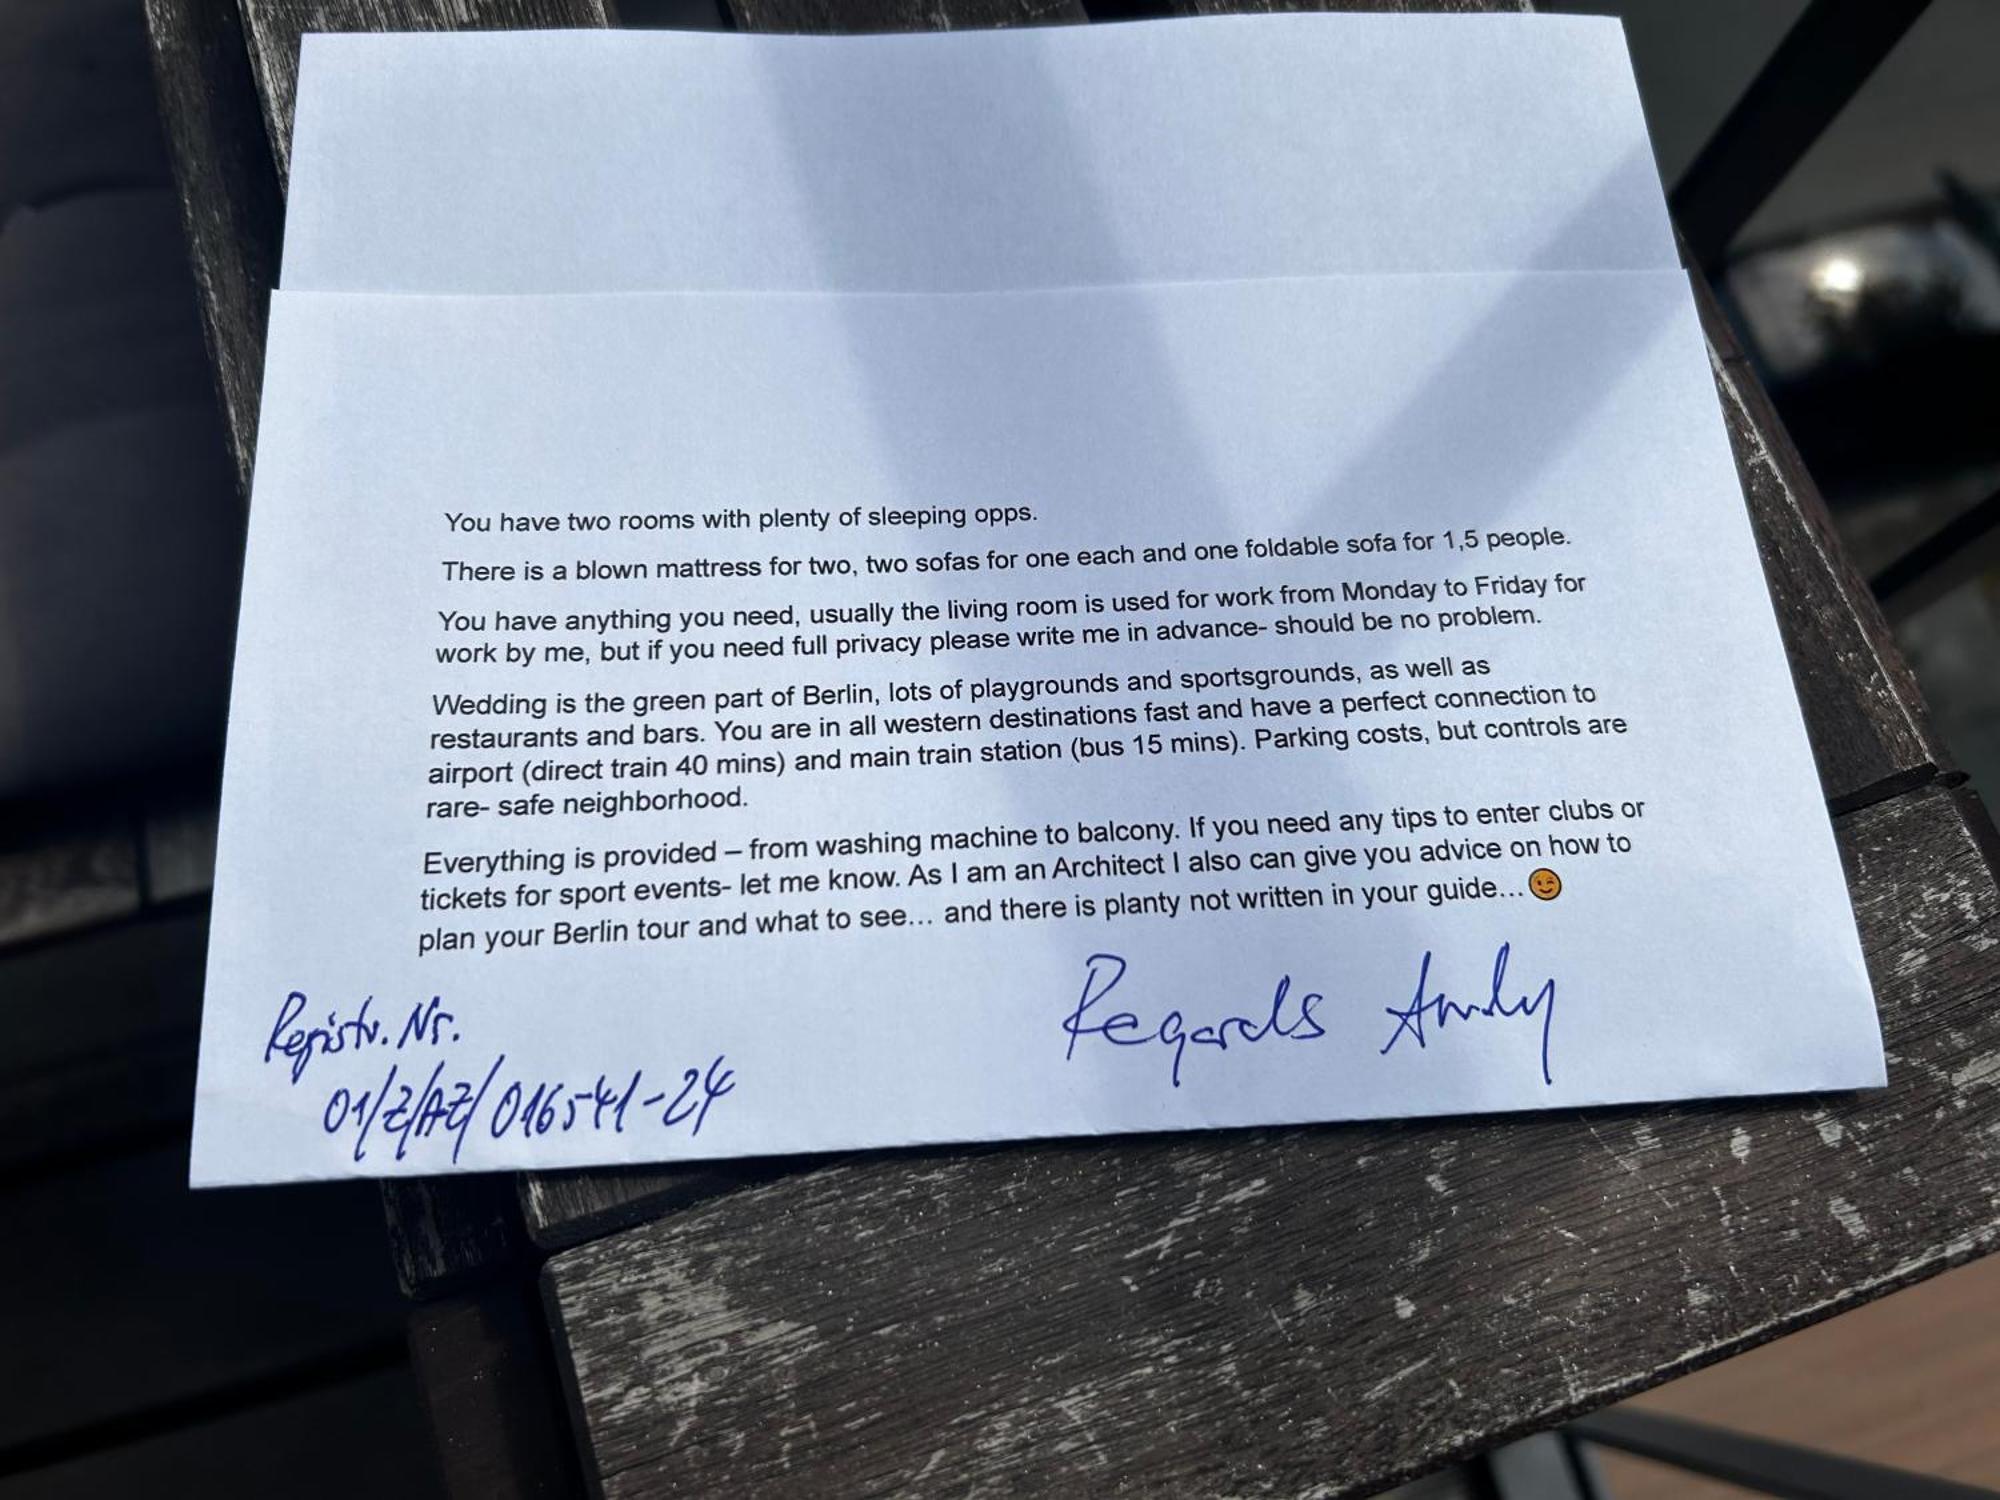 You have two rooms with plenty of sleeping opps.
There is a blown mattress for two, two sofas for one each and one foldable sofa for 1,5 people.
You have anything you need, usually the living room is used for work from Monday to Friday for
work by me, but if you need full privacy please write me in advance- should be no problem.
Wedding is the green part of Berlin, lots of playgrounds and sportsgrounds, as well as
restaurants and bars. You are in all western destinations fast and have a perfect connection to
airport (direct train 40 mins) and main train station (bus 15 mins). Parking costs, but controls are
rare- safe neighborhood.
Everything is provided – from washing machine to balcony. If you need any tips to enter clubs or
tickets for sport events- let me know. As I am an Architect I also can give you advice on how to
plan your Berlin tour and what to see… and there is planty not written in your guide…😉
Regards Andy
Registr. Nr.
01/Z/AZ/016541-24